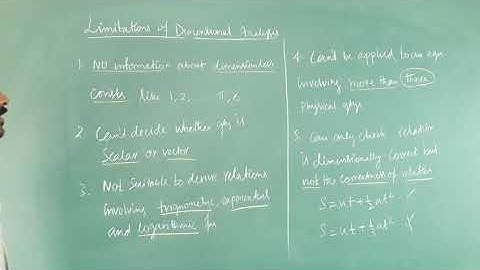 Limitations of Dimensional Analysis
1. NO information about dimensionless
consts like 1, 2, π, e
2 Can't decide whether qty is
Scalar or vector
3. Not Suitable to derive relations
involving trignometric, exponential
and logarithmic fn
4. Can't be applied to an eqn
involving more than three
physical qtys
5. Can only check relation
is dimensionally correct but
not the correctness of relation
S = ut + ½ at² ✓
S = ut + ⅓ at² ✗